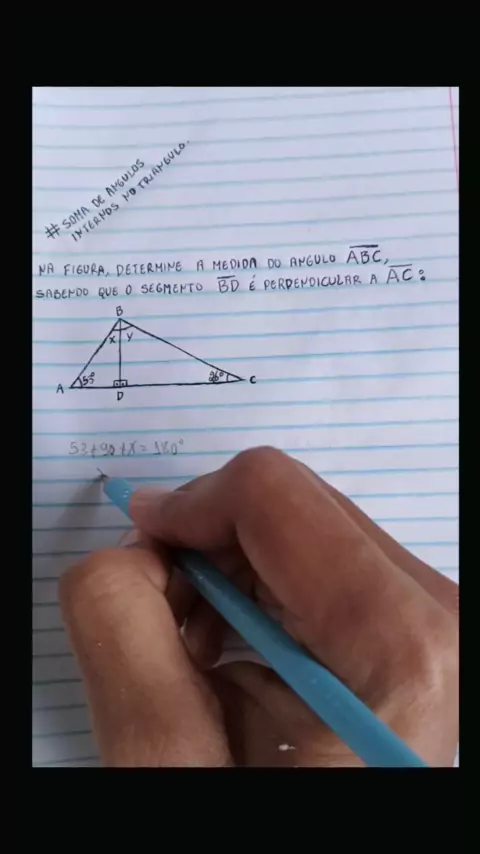 # SOMA DE ANGULOS
INTERNOS NO TRIANGULO.
NA FIGURA, DETERMINE A MEDIDA DO ANGULO ABC,
SABENDO QUE O SEGMENTO BD É PERPENDICULAR A AC:
B
X Y
A 53° 28° C
D
53+90+X=180°